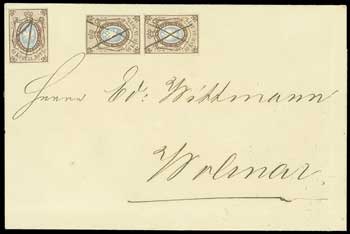 Herrn Ed: Wittmann
Wolmar